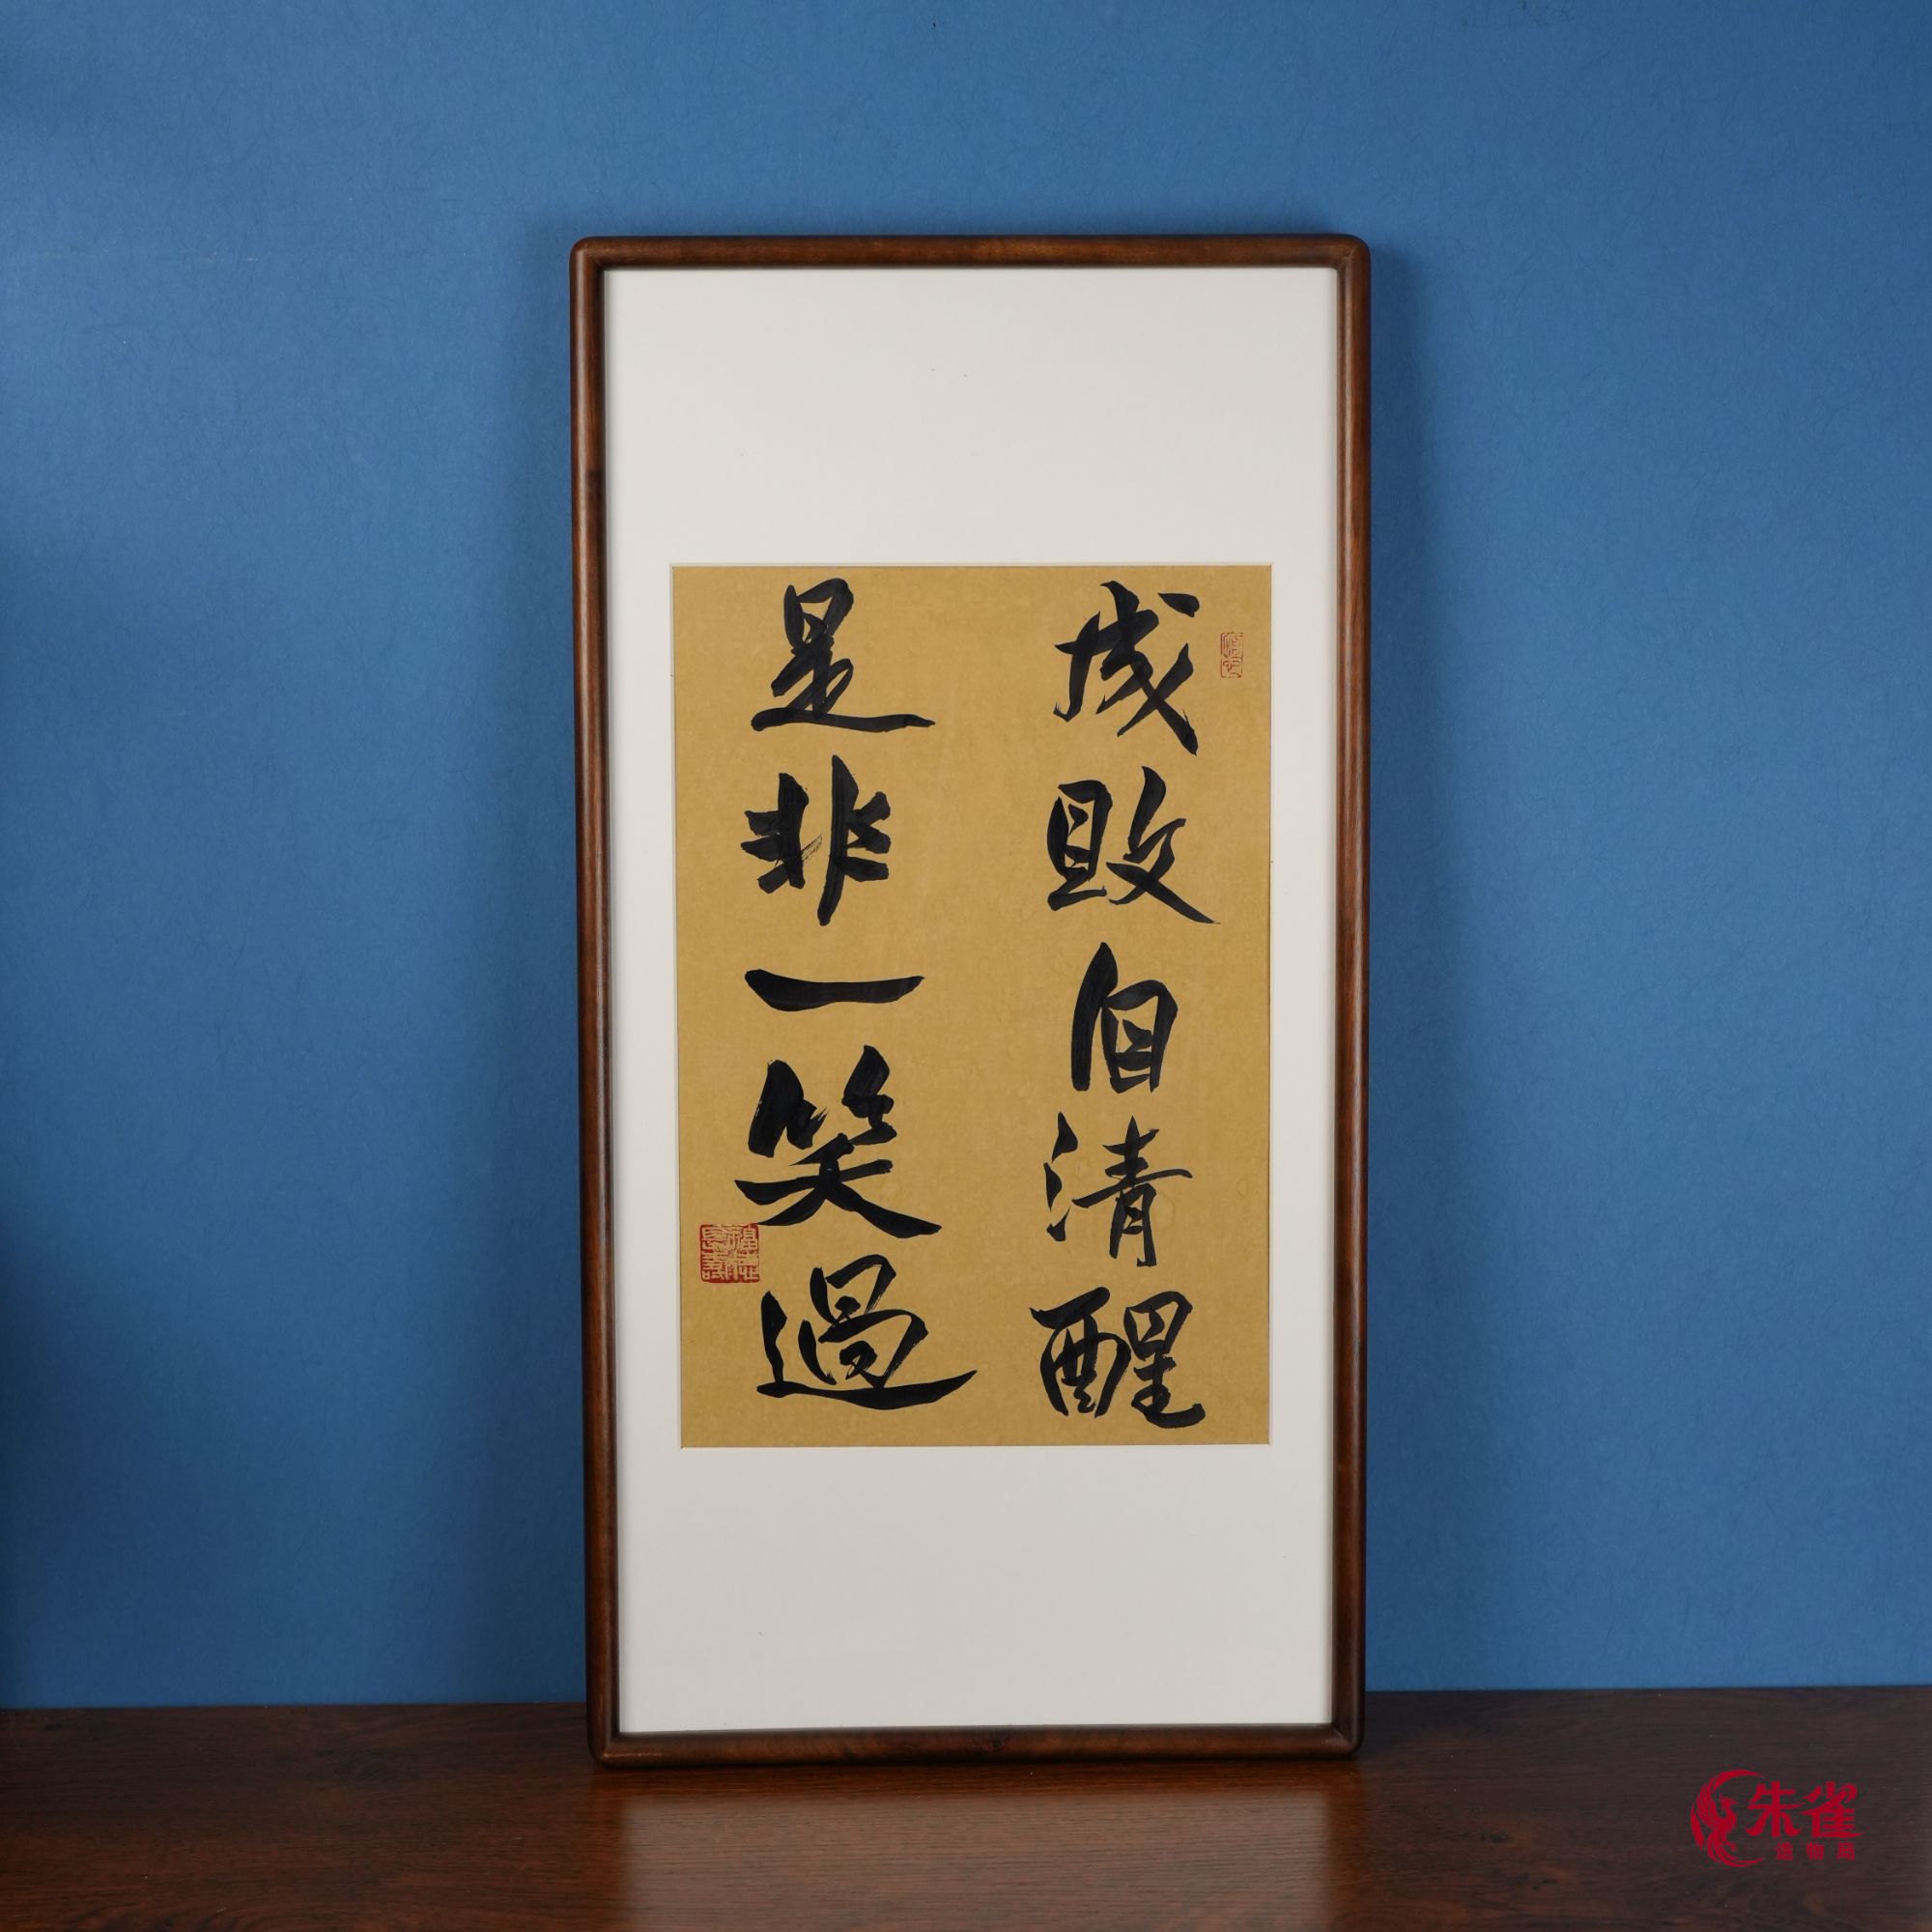 成敗自清醒
是非一笑過
朱雀